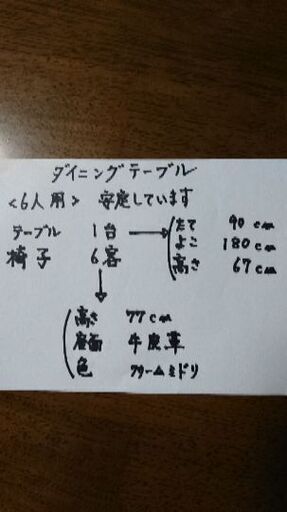 ダイニングテーブル
<6人用> 安定しています
テーブル 1台 → たて 90cm
よこ 180cm
椅子 6客 高さ 67cm
↓
高さ 77cm
座面 牛皮革
色 クリームミドリ